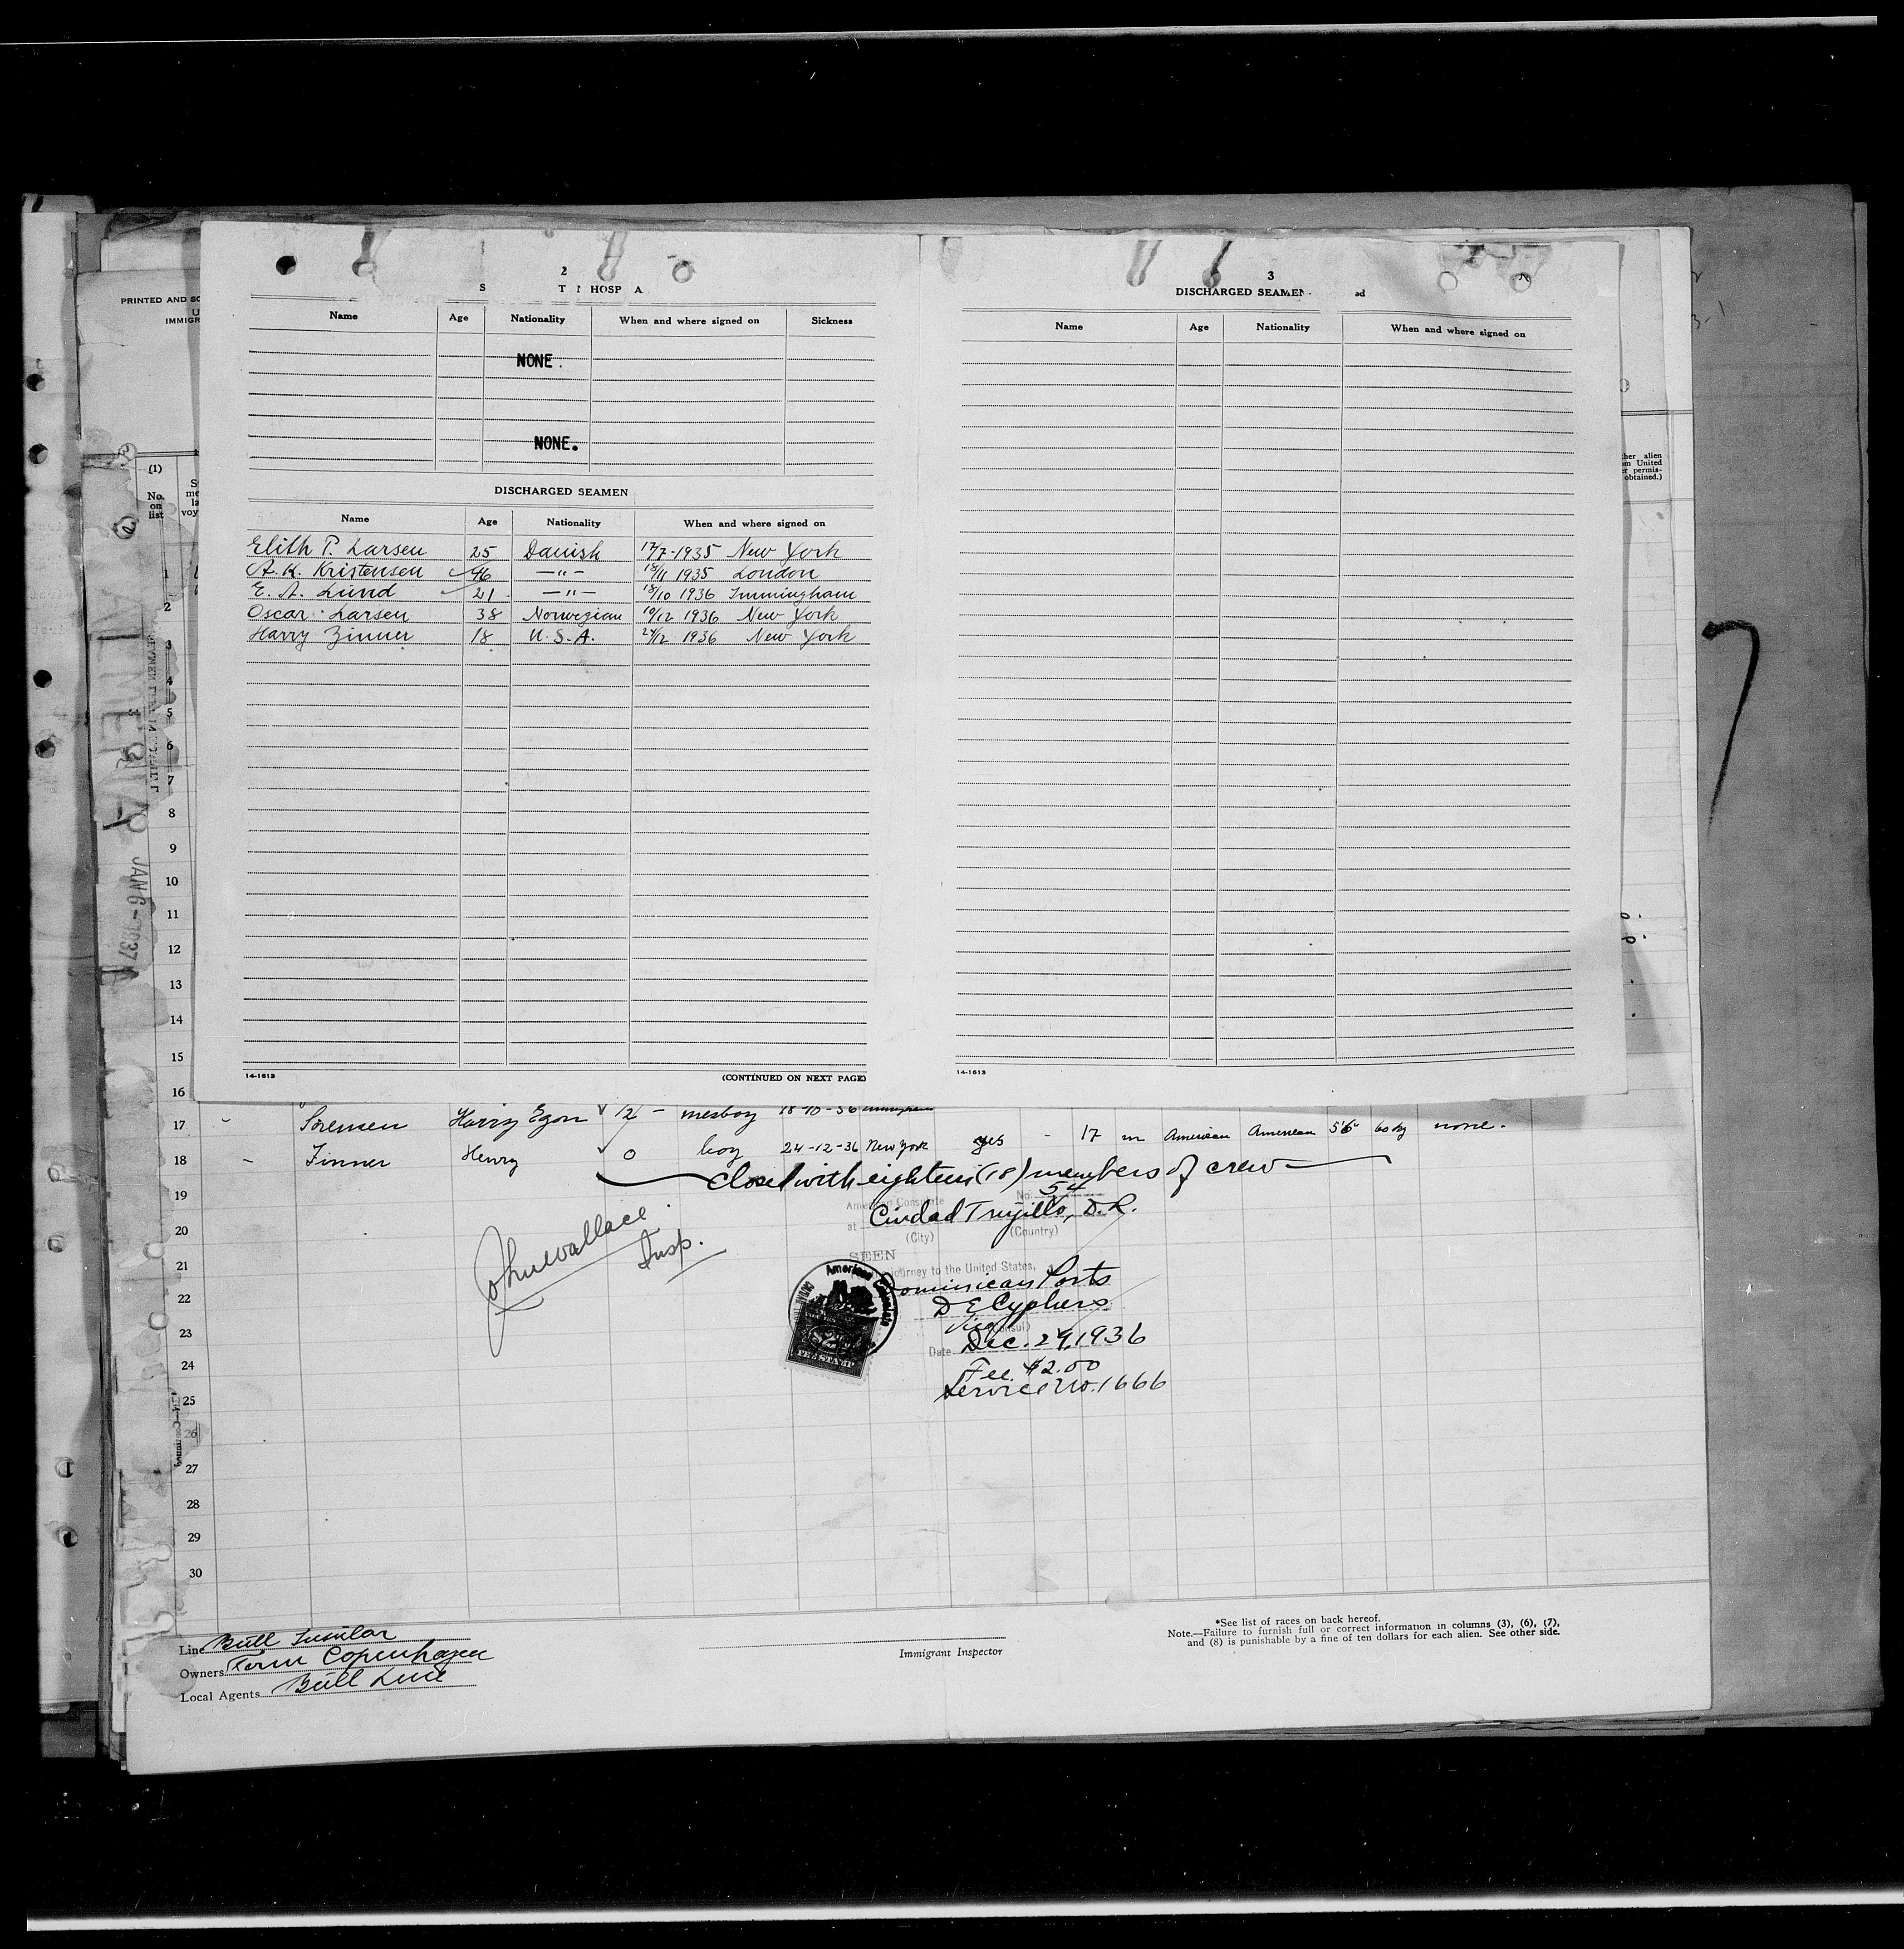 2
HOSP
Name Age Nationality When and where signed on Sickness
NONE.
NONE.
DISCHARGED SEAMEN
Name Age Nationality When and where signed on
Elith P. Larsen 25 Danish 17/7-1935 New York
A. K. Kristensen 46 —"— 18/11 1935 London
E. A. Lund 21 —"— 18/10 1936 Immingham
Oscar Larsen 38 Norwegian 10/12 1936 New York
Harry Zinner 18 U.S.A. 24/12 1936 New York
14-1613 (CONTINUED ON NEXT PAGE)
3
DISCHARGED SEAMEN
Name Age Nationality When and where signed on
14-1613
PRINTED AND
IMMIGR
(1)
No. on list
her alien
m United
permis-
obtained.)
JAN 6-1937
1
2
3
4
5
6
7
8
9
10
11
12
13
14
15
16
17 - Sorensen Harry Egon 12 - messboy 18-10-36
18 - Zinner Henry 0 boy 24-12-36 New York yes - 17 m American American 5'6" none.
19
20
21
22
23
24
25
26
27
28
29
30
closed with eighteen (18) members of crew
American Consulate No. 54
at Ciudad Trujillo, D.R.
(City) (Country)
SEEN
journey to the United States,
Dominican Ports
D E Cyphers
Vice Consul)
Date Dec. 29, 1936
Fee $2.00
Service No. 1666
American Consulate
FEE STAMP
John Wallace
Insp.
Line Bull Insular
Owners Torm Copenhagen
Local Agents Bull Line
Immigrant Inspector
*See list of races on back hereof.
Note.—Failure to furnish full or correct information in columns (3), (6), (7),
and (8) is punishable by a fine of ten dollars for each alien. See other side.